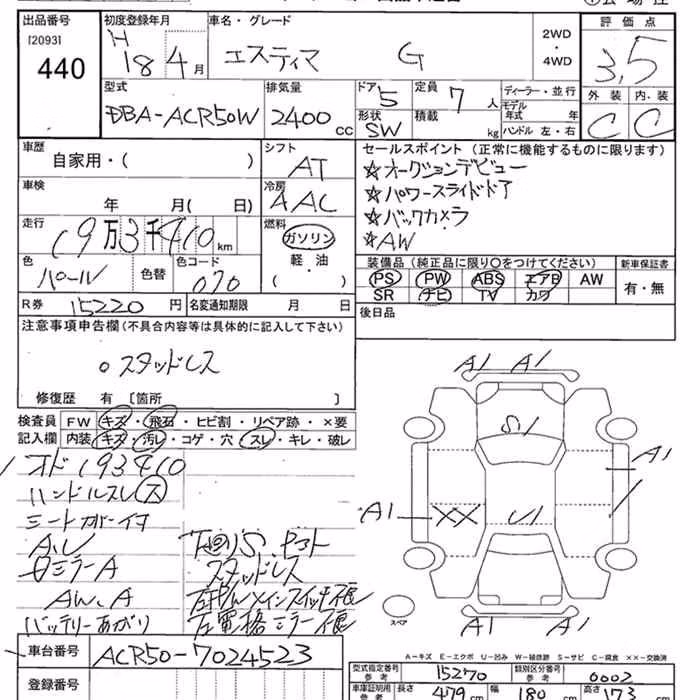 出品番号 初度登録年月 車名・グレード 2WD・4WD 評価点
[2093] 440 H18年4月 エスティマ G 3,5
外装 内装
C C
型式 排気量 ドア 5 定員 7人 ディーラー・並行
モデル年式 年
DBA-ACR50W 2400cc 形状 SW 積載 kg ハンドル 左・右
車歴 シフト セールスポイント (正常に機能するものに限ります)
自家用・( ) AT ☆オークションデビュー
車検 冷房 ☆パワースライドドア
年 月( 日) AAC ☆バックカメラ
走行 燃料 ☆AW
19万3千410km ガソリン
軽・油
( )
色 色替 色コード 装備品 (純正品に限り○をつけてください) 新車保証書
パール 070 PS PW ABS エアB AW 有・無
SR ナビ TV カワ
R券 15220円 名変通知期限 月 日 後日品
注意事項申告欄 (不具合内容等は具体的に記入して下さい)
○スタッドレス
修復歴 有 [箇所 ]
検査員 FW キズ・飛石・ヒビ割・リペア跡・×要
記入欄 内装 キズ・汚レ・コゲ・穴・スレ・キレ・破レ
オド193410
ハンドルスレ(ス)
A,レ
下回りS.セット
スタッドレス
AW、A
バッテリーあがり
A1 A1
S1
A1
A1 XX U1
A1 A1
スペア
車台番号 ACR50-7024523
登録番号
A-キズ E-エクボ U-凹み W-補修跡 S-サビ C-腐食 ××-交換済
型式指定番号 参考 15270 類別区分番号 参考 0002
車庫証明用 参考 長さ 479cm 幅 180cm 高さ 173cm